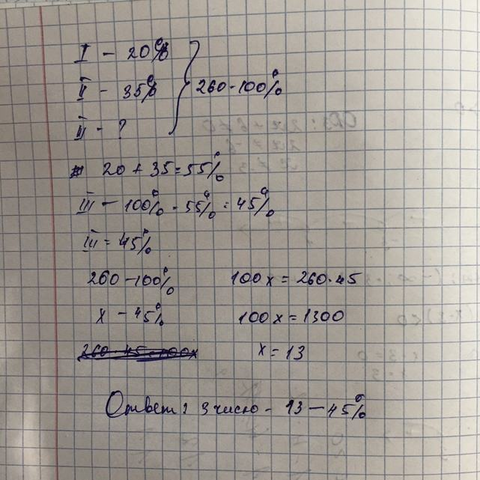 I - 20%
II - 35% 260-100%
III - ?
20 + 35 = 55%
III - 100% - 55% = 45%
III = 45%
260 - 100% 100x = 260·45
x - 45% 100x = 1300
260·45=100x x = 13
Ответ: 3 число - 13 - 45%